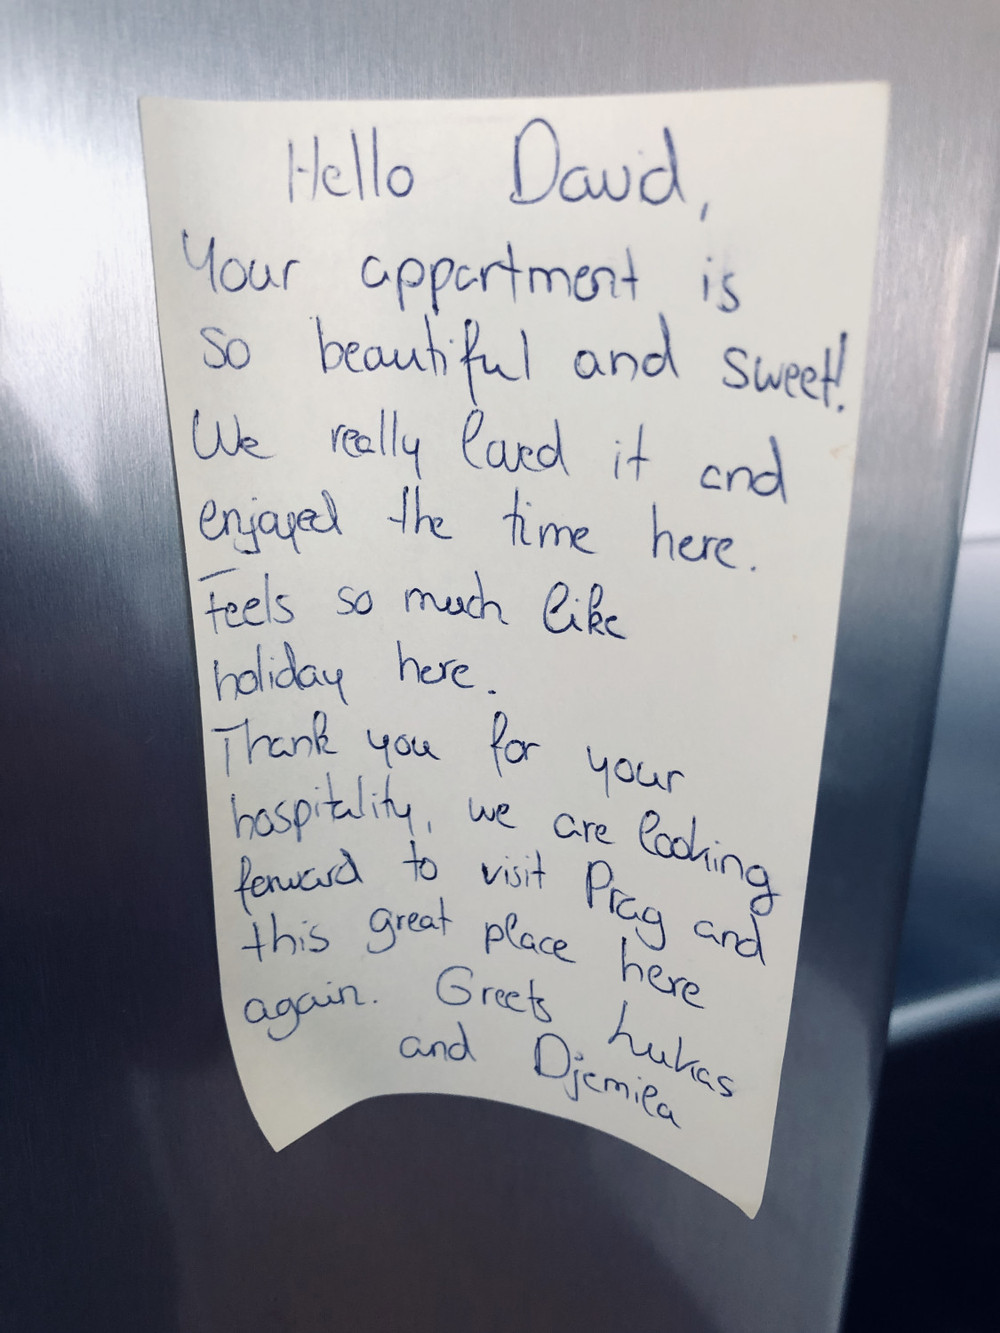 Hello David,
Your appartment is
so beautiful and sweet!
We really loved it and
enjoyed the time here.
Feels so much like
holiday here.
Thank you for your
hospitality, we are looking
forward to visit Prag and
this great place here
again. Greets Lukas
and Djemila